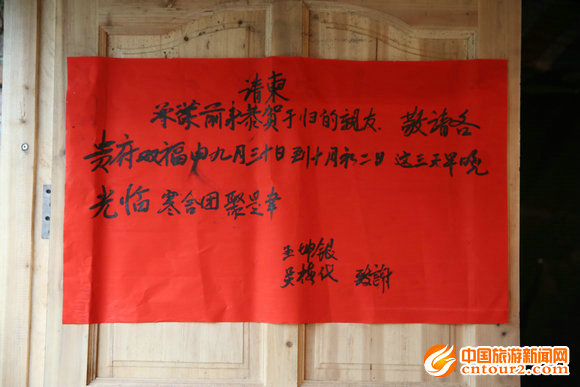 请柬
承蒙前来恭贺于归的親友、敬請各
贵府双福由九月三十日到十月初二日 这三天早晚
光临 寒舍团聚是幸
王坤银
吴梅代 致謝
中国旅游新闻网
cntour2.com